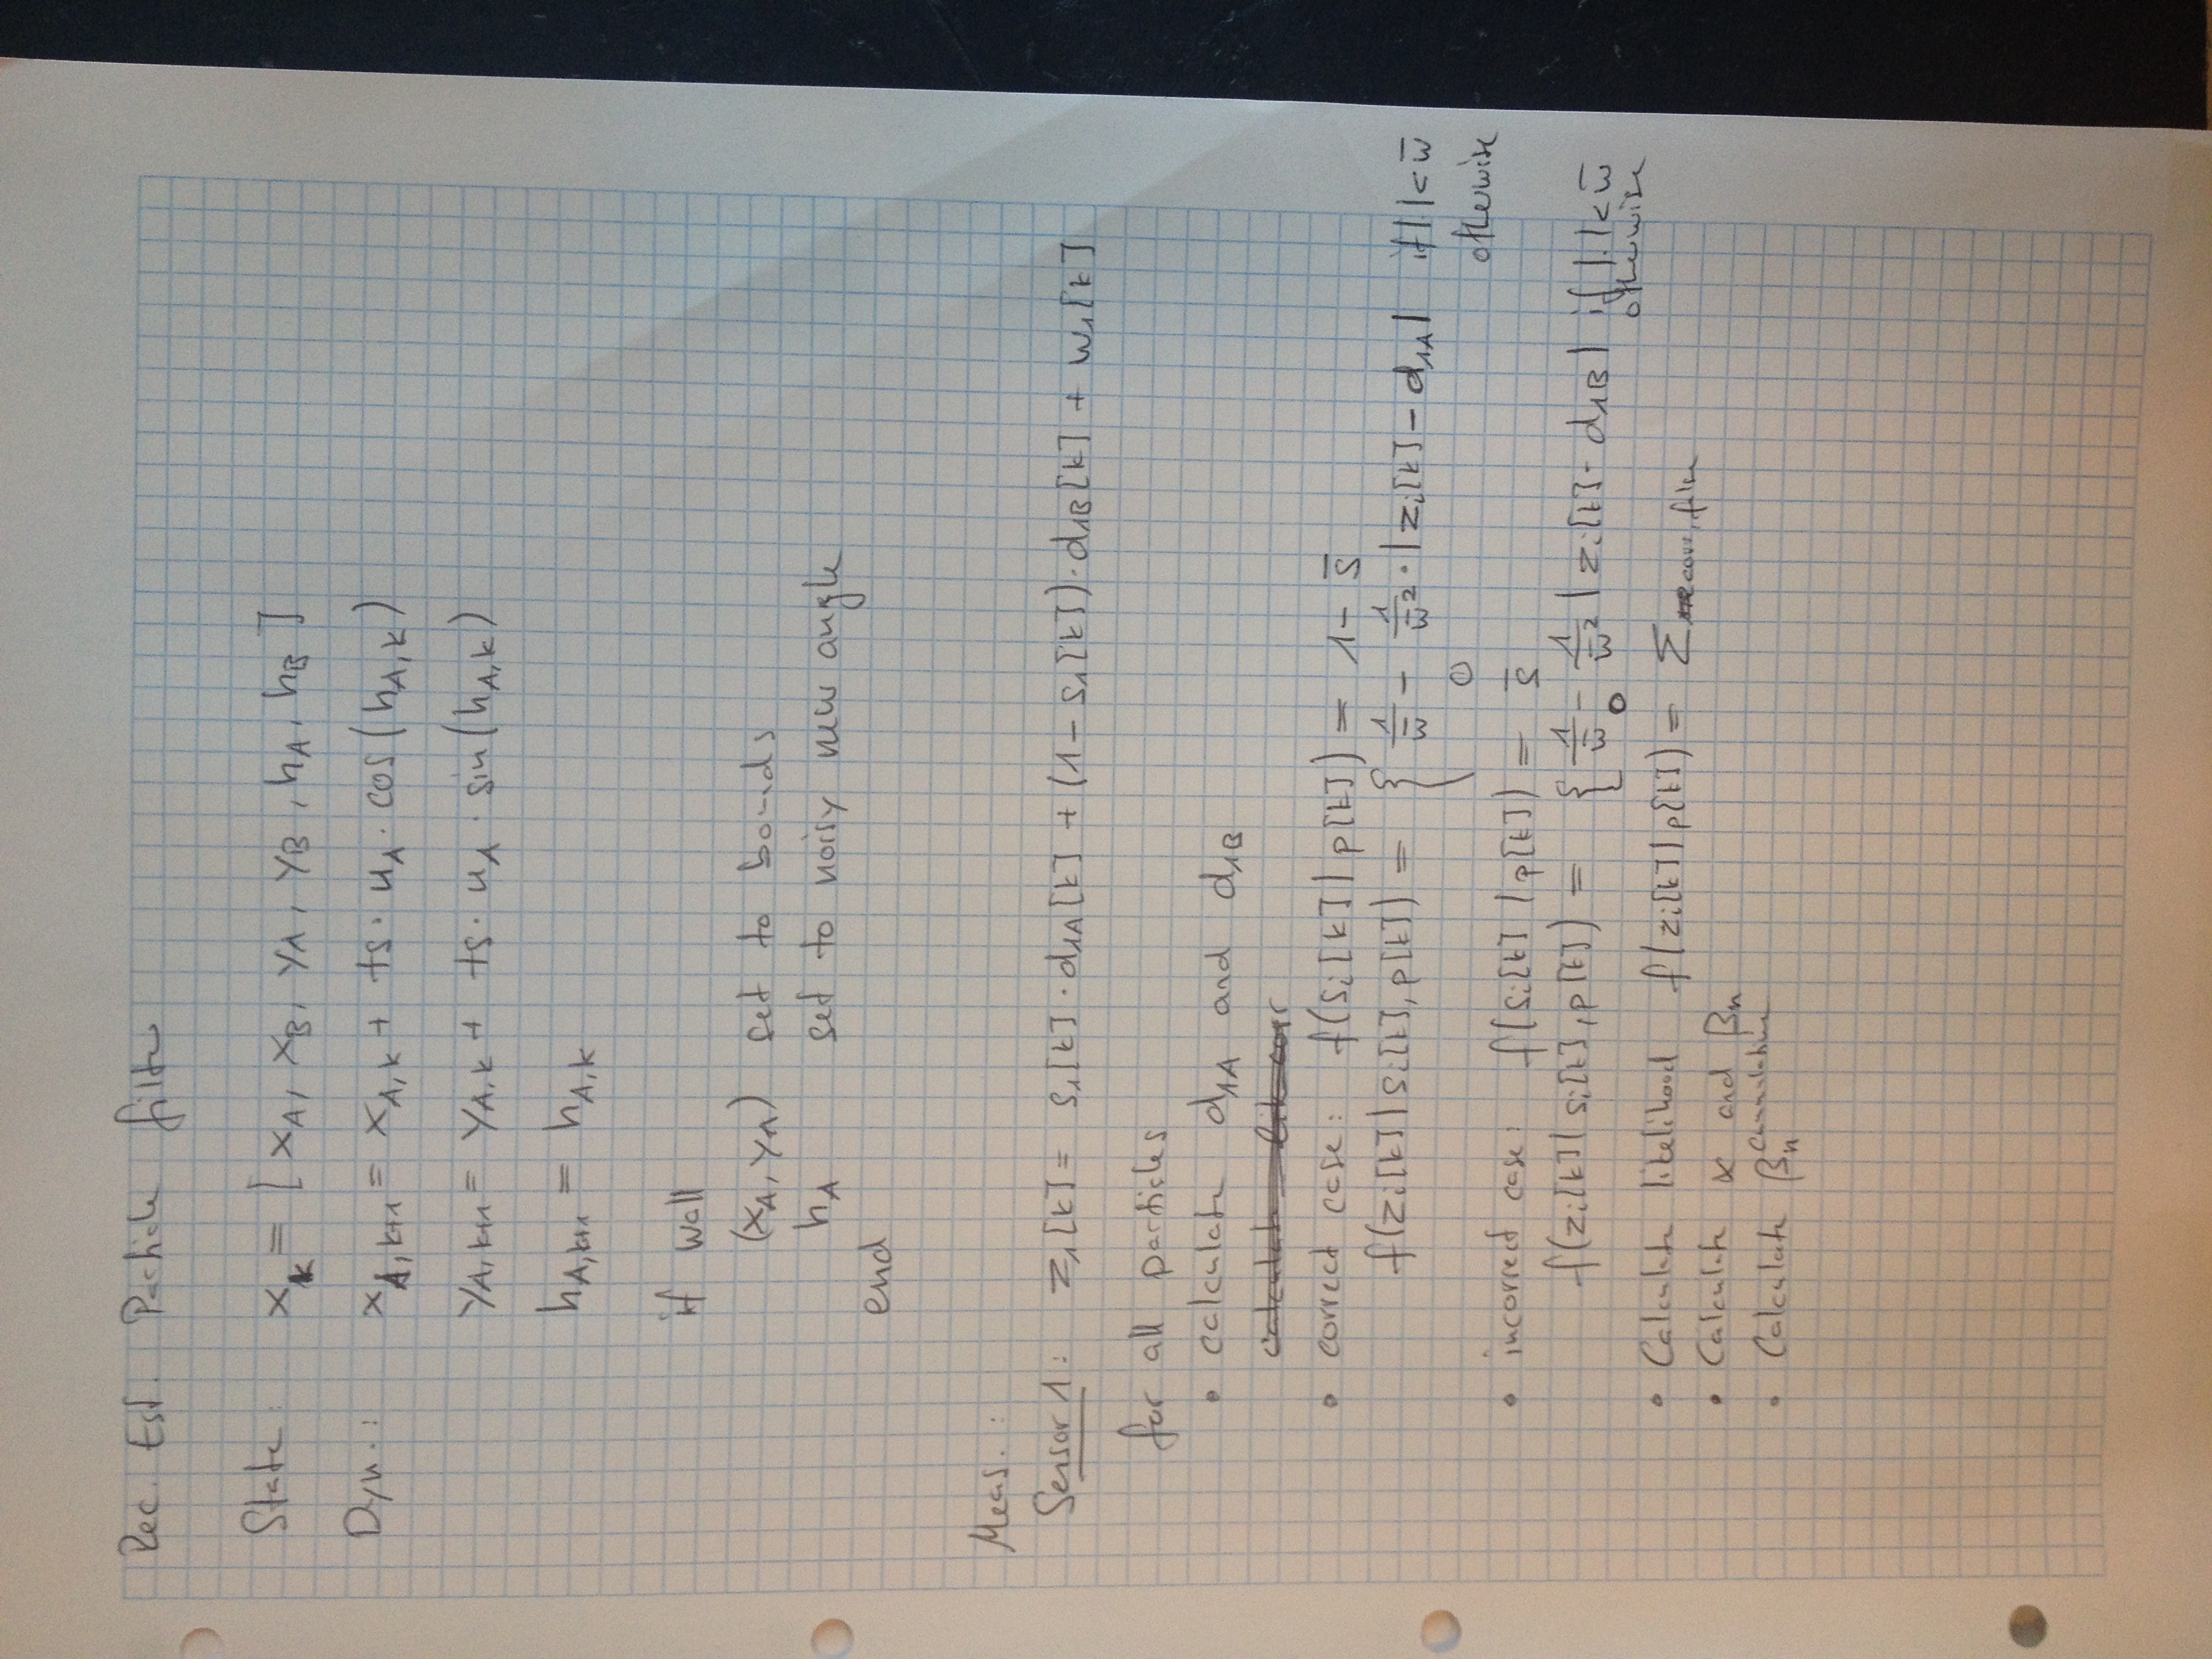 Rec. Est. Particle filter
State: x_k = [ x_A, x_B, y_A, y_B, h_A, h_B ]
Dyn.: x_A,k+1 = x_A,k + ts · u_A · cos(h_A,k)
y_A,k+1 = y_A,k + ts · u_A · sin(h_A,k)
h_A,k+1 = h_A,k
if wall
(x_A, y_A) set to bounds
h_A set to noisy new angle
end
Meas.:
Sensor 1: z_1[k] = s_1[k] · d_1A[k] + (1 - s_1[k]) · d_1B[k] + w_1[k]
for all particles
• calculate d_1A and d_1B
• correct case: f(s_i[k] | p[k]) = 1 - s̄
f(z_i[k] | s_i[k], p[k]) = { 1/w̄ - 1/w̄² · | z_i[k] - d_1A | if |.| < w̄
0 otherwise
• incorrect case: f(s_i[k] | p[k]) = s̄
f(z_i[k] | s_i[k], p[k]) = { 1/w̄ - 1/w̄² | z_i[k] - d_1B | if |.| < w̄
0 otherwise
• Calculate likelihood f(z_i[k] | p[k]) = Σ corr, false
• Calculate α and β_n
• Calculate β_n^cumulative